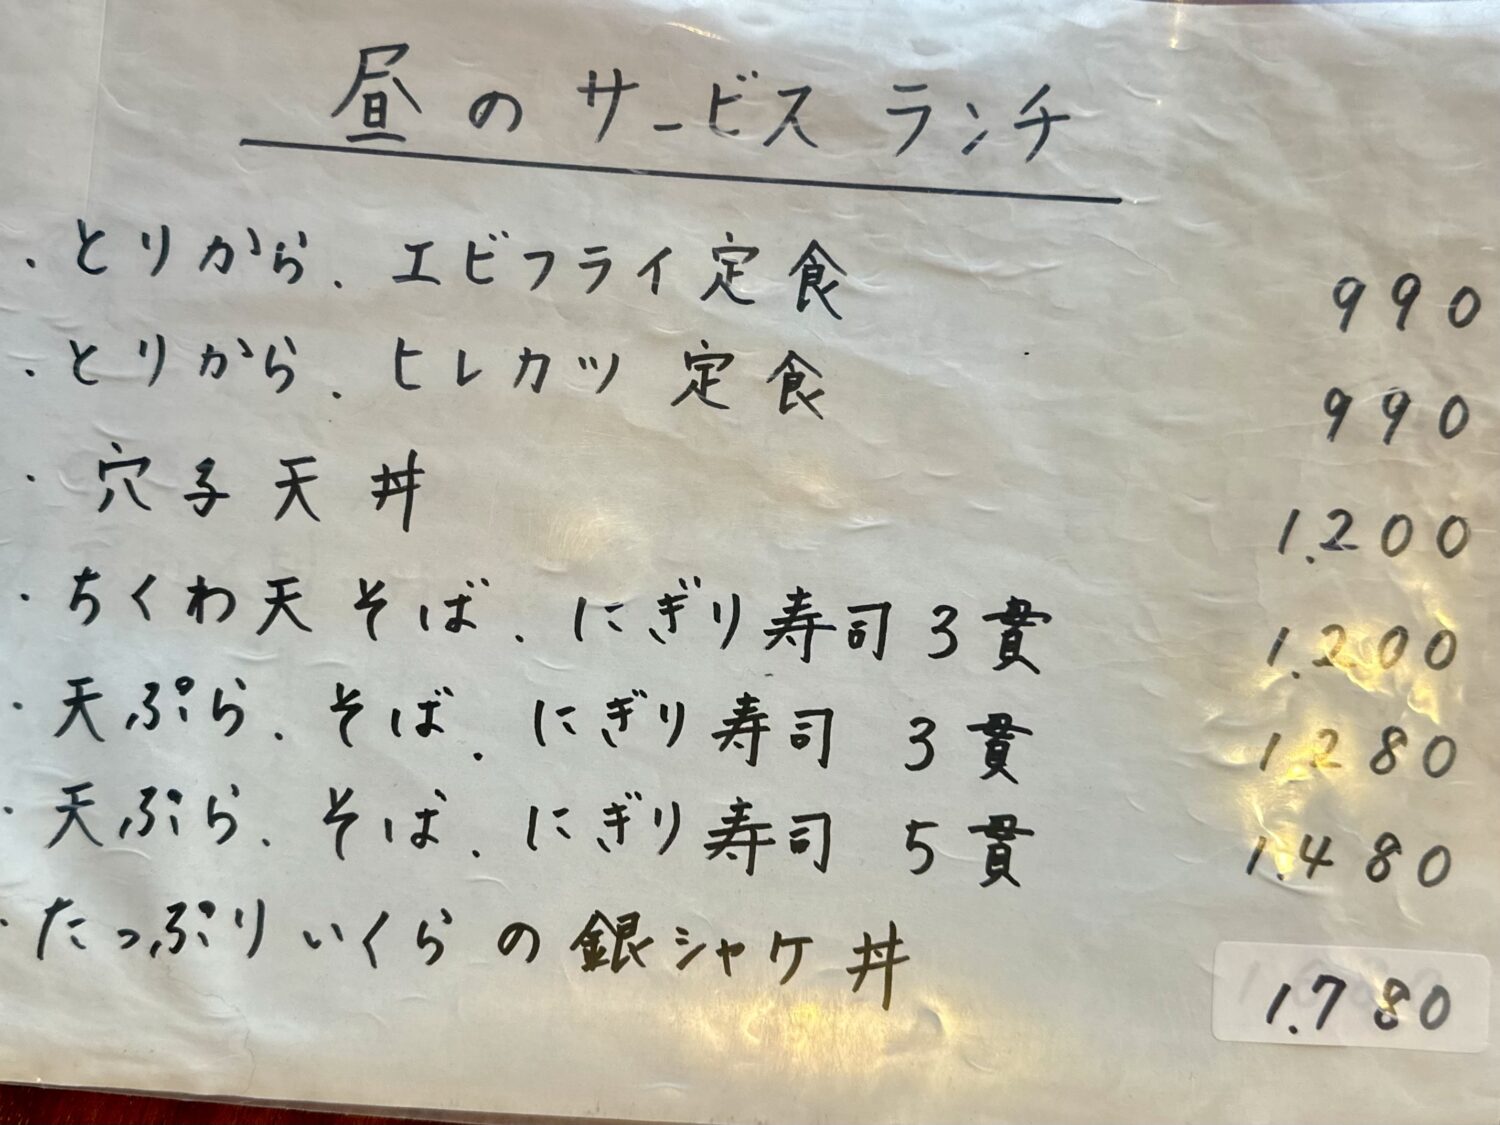 昼のサービスランチ
・とりから、エビフライ定食 990
・とりから、ヒレカツ定食 990
・穴子天丼 1.200
・ちくわ天そば、にぎり寿司3貫 1.200
・天ぷら、そば、にぎり寿司 3貫 1.280
・天ぷら、そば、にぎり寿司 5貫 1.480
・たっぷりいくらの銀シャケ丼 1.780